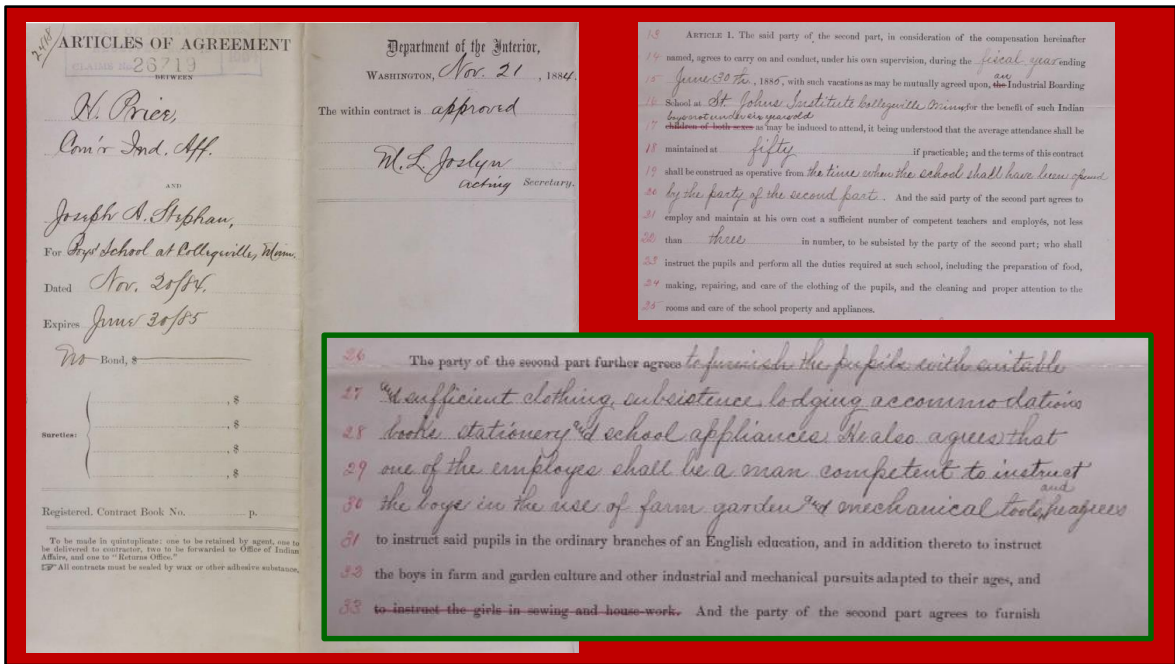 2418
ARTICLES OF AGREEMENT
26719
BETWEEN
H. Price,
Com'r Ind. Aff.
AND
Joseph A. Stephan,
For Boys' School at Collegeville, Minn.
Dated Nov. 20/84.
Expires June 30/85
No Bond, $
, $
, $
Sureties:
, $
, $
Registered. Contract Book No. p.
To be made in quintuplicate: one to be retained by agent, one to
be delivered to contractor, two to be forwarded to Office of Indian
Affairs, and one to "Returns Office."
☞ All contracts must be sealed by wax or other adhesive substance.
Department of the Interior,
WASHINGTON, Nov. 21, 1884.
The within contract is approved
M. L. Joslyn
acting Secretary.
13 ARTICLE 1. The said party of the second part, in consideration of the compensation hereinafter
14 named, agrees to carry on and conduct, under his own supervision, during the fiscal year ending
15 June 30th, 1885, with such vacations as may be mutually agreed upon, the an Industrial Boarding
16 School at St. Johns Institute Collegeville Minn for the benefit of such Indian
boys not under six years old
17 children of both sexes as may be induced to attend, it being understood that the average attendance shall be
18 maintained at fifty if practicable; and the terms of this contract
19 shall be construed as operative from the time when the school shall have been opened
20 by the party of the second part. And the said party of the second part agrees to
21 employ and maintain at his own cost a sufficient number of competent teachers and employés, not less
22 than three in number, to be subsisted by the party of the second part; who shall
23 instruct the pupils and perform all the duties required at such school, including the preparation of food,
24 making, repairing, and care of the clothing of the pupils, and the cleaning and proper attention to the
25 rooms and care of the school property and appliances.
26 The party of the second part further agrees to furnish the pupils with suitable
27 and sufficient clothing, subsistence, lodging accommodations
28 books stationery and school appliances. He also agrees that
29 one of the employes shall be a man competent to instruct
30 the boys in the use of farm garden and mechanical tools, and he agrees
31 to instruct said pupils in the ordinary branches of an English education, and in addition thereto to instruct
32 the boys in farm and garden culture and other industrial and mechanical pursuits adapted to their ages, and
33 to instruct the girls in sewing and house-work. And the party of the second part agrees to furnish